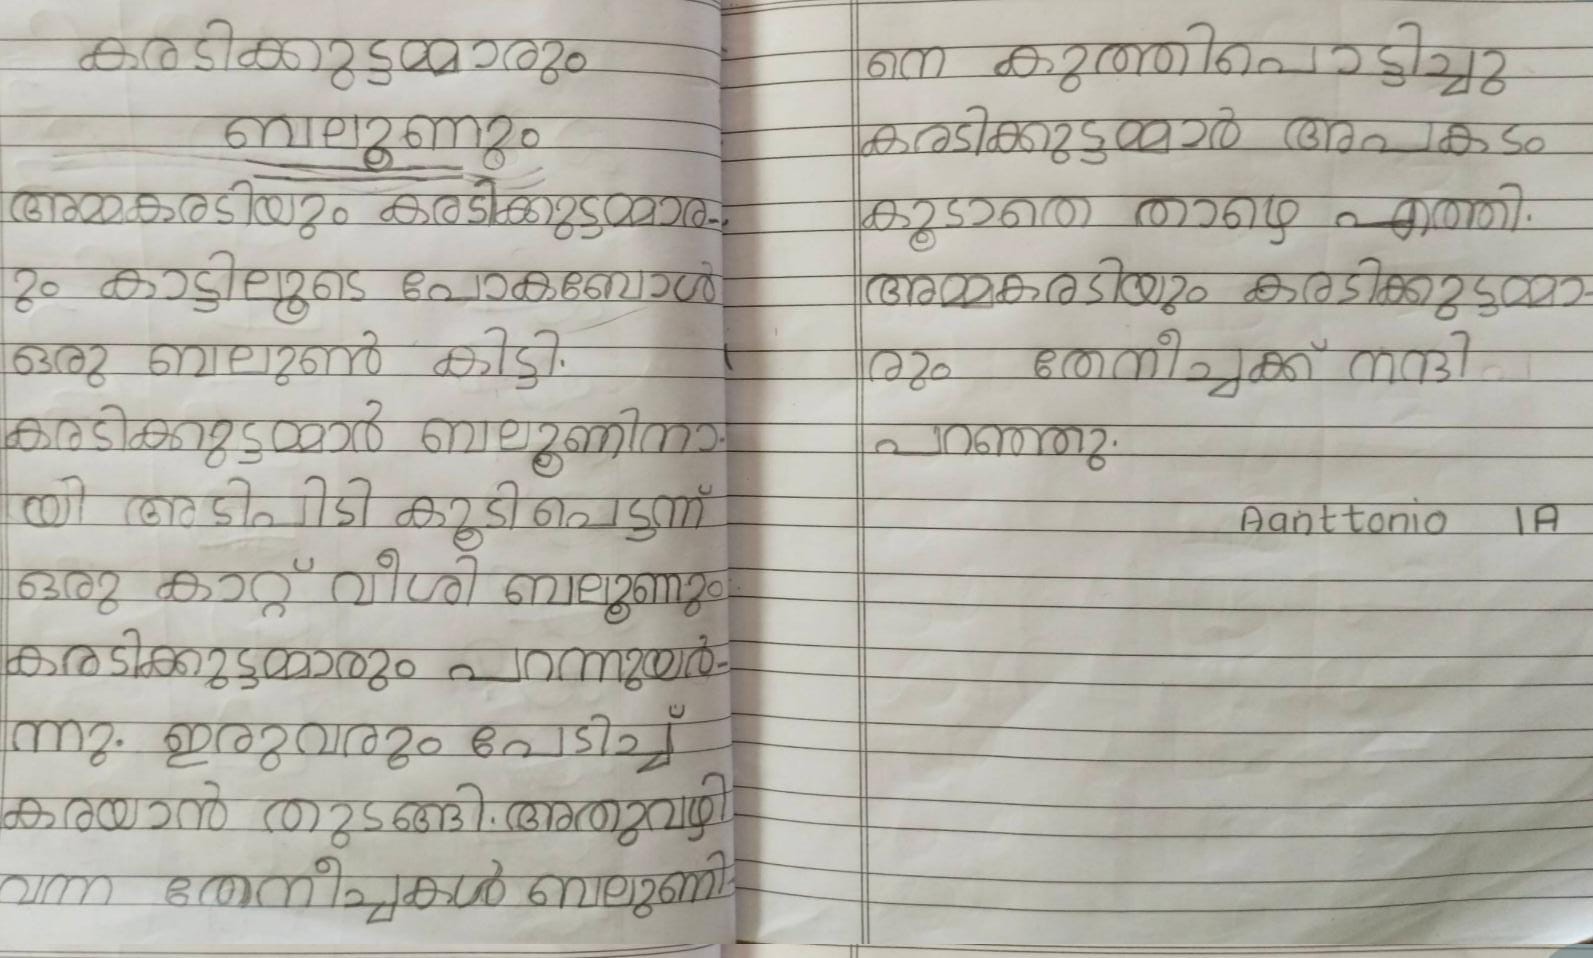 കരടിക്കുട്ടന്മാരും
ബലൂണും
അമ്മകരടിയും കരടിക്കുട്ടന്മാര-
ും കാട്ടിലൂടെ പോകുമ്പോൾ
ഒരു ബലൂൺ കിട്ടി.
കരടിക്കുട്ടന്മാർ ബലൂണിനാ-
യി അടിപിടി കൂടി പെട്ടന്ന്
ഒരു കാറ്റ് വീശി ബലൂണും
കരടിക്കുട്ടന്മാരും പറന്നുയർ-
ന്നു. ഇരുവരും പേടിച്ച്
കരയാൻ തുടങ്ങി. അതുവഴി
വന്ന തേനീച്ചകൾ ബലൂണി-
നെ കുത്തിപൊട്ടിച്ചു
കരടിക്കുട്ടന്മാർ അപകടം
കൂടാതെ താഴെ എത്തി.
അമ്മകരടിയും കരടിക്കുട്ടന്മാ-
രും തേനീച്ചക്ക് നന്ദി
പറഞ്ഞു.
Aanttonio 1A